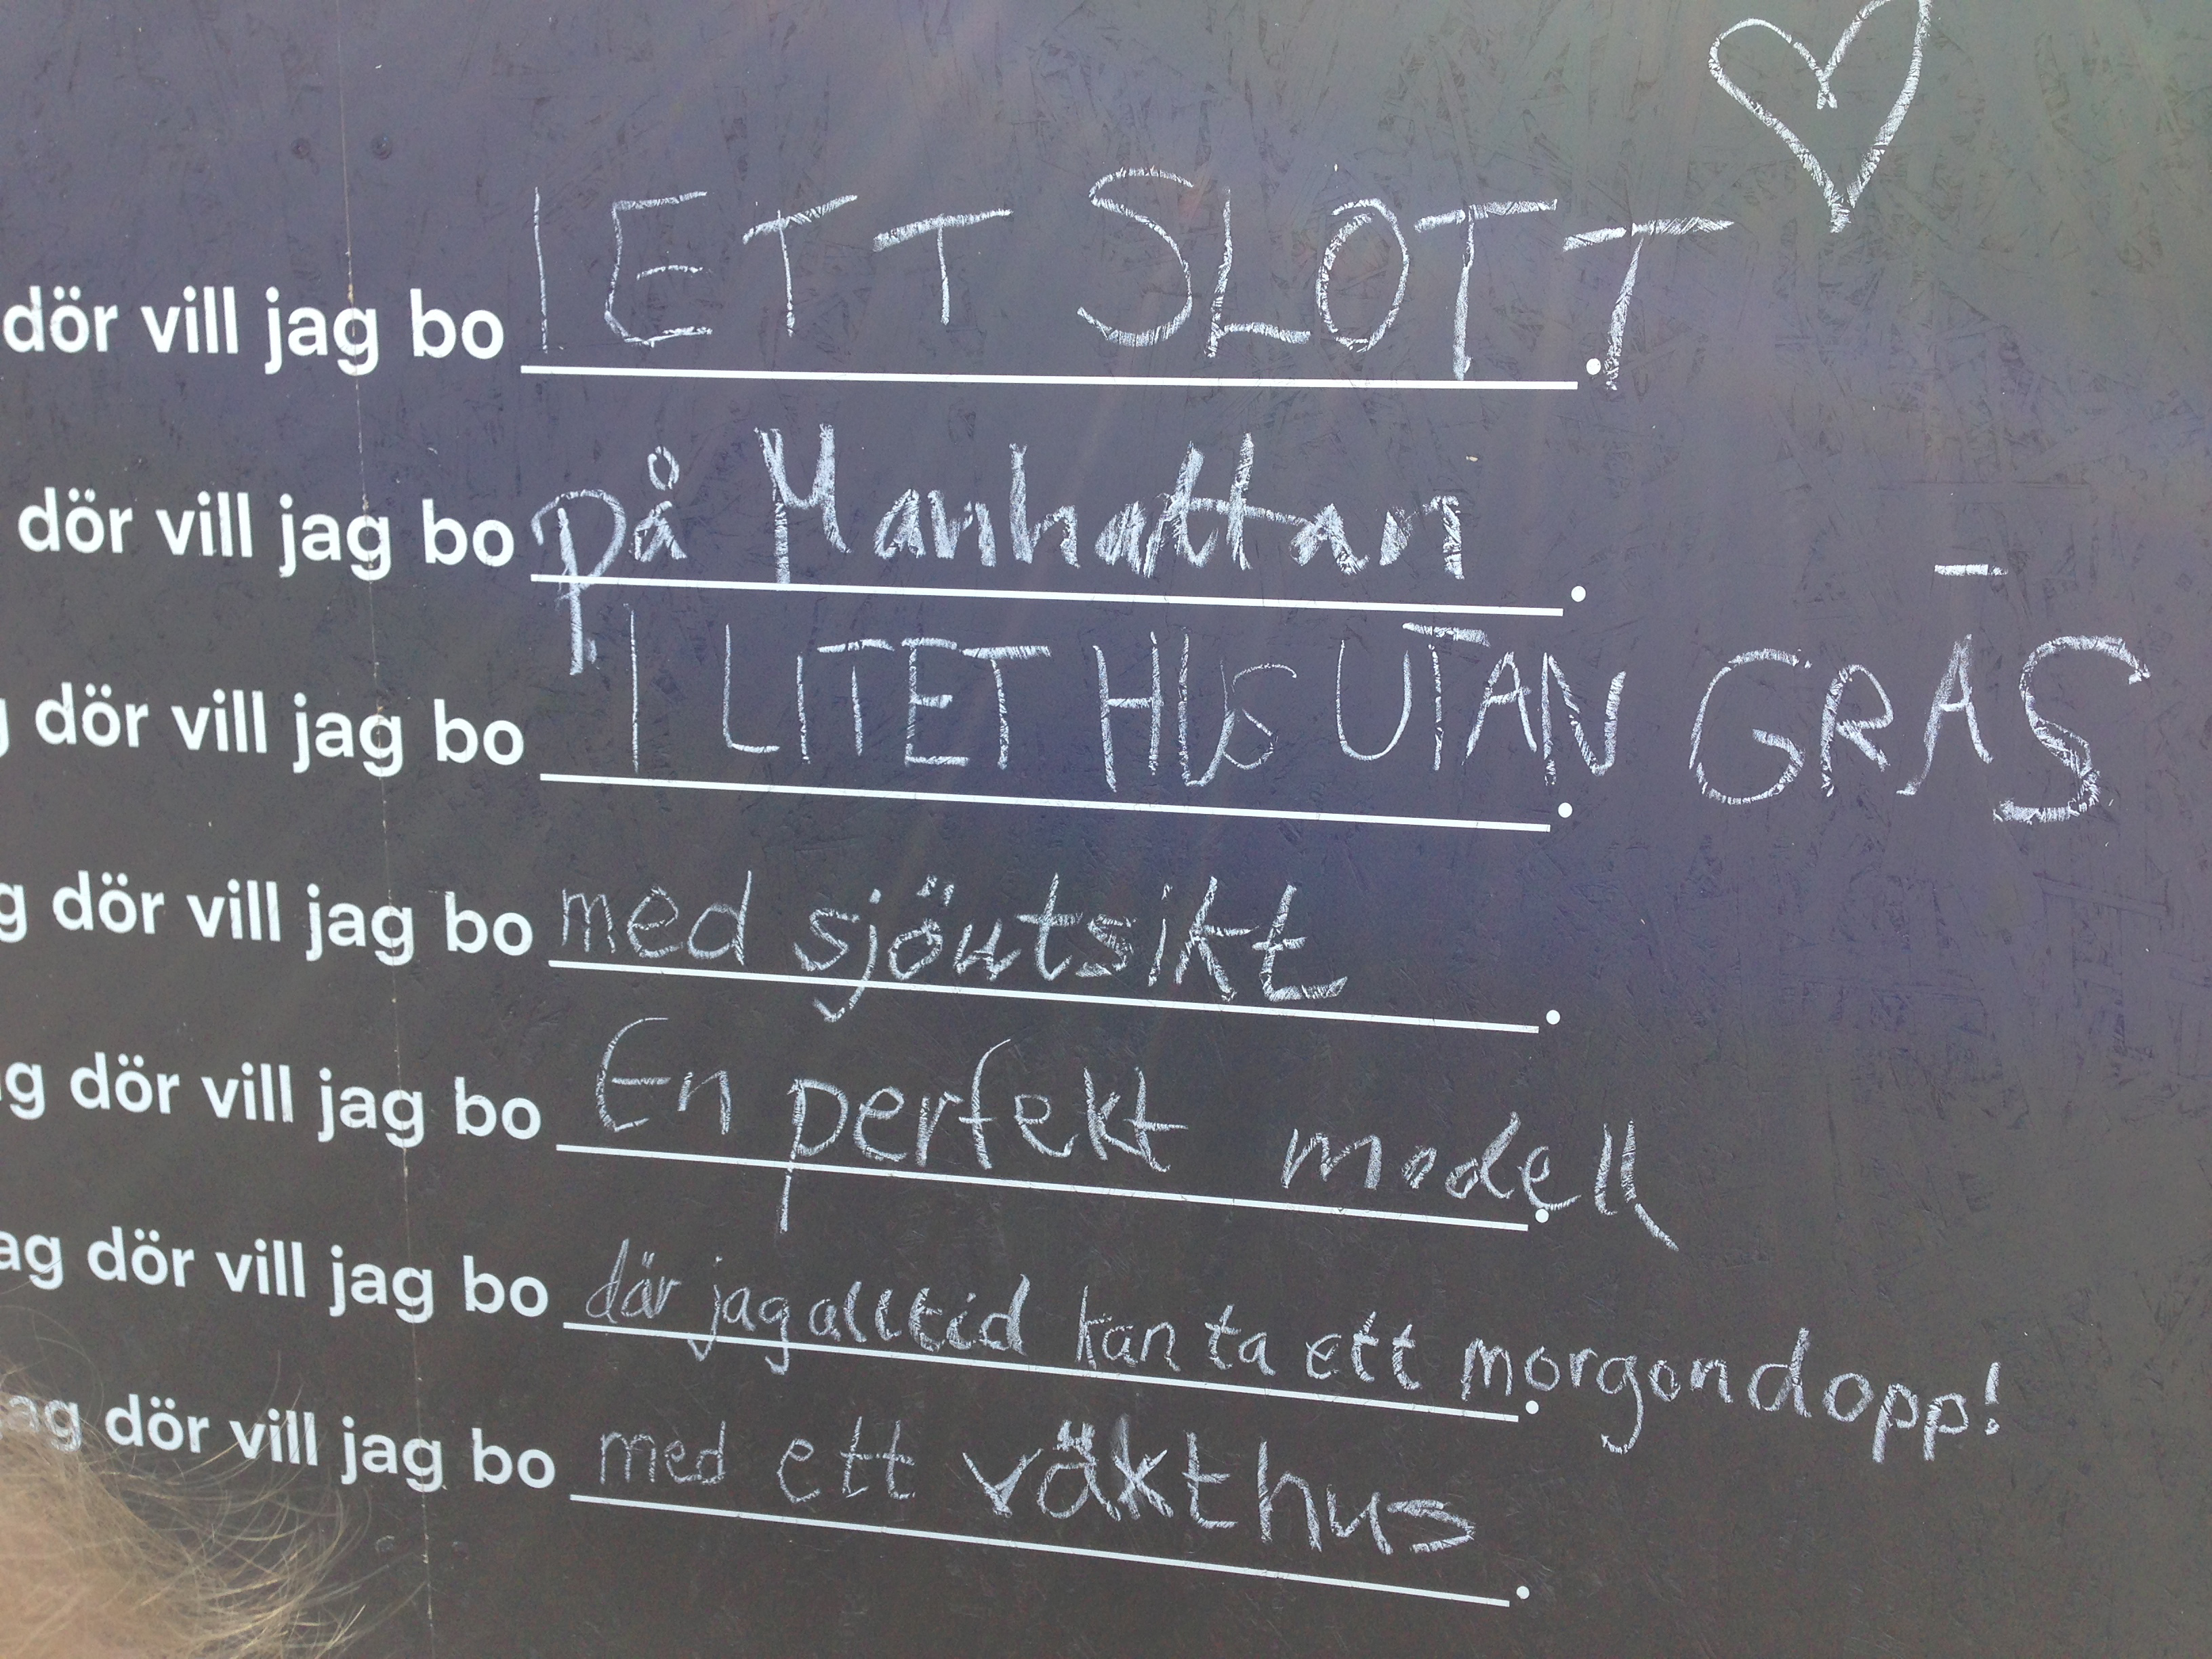 dör vill jag bo I ETT SLOTT.
dör vill jag bo på Manhattan.
g dör vill jag bo I LITET HUS UTAN GRÄS.
g dör vill jag bo med sjöutsikt.
ag dör vill jag bo En perfekt modell.
ag dör vill jag bo där jag alltid kan ta ett morgondopp!.
jag dör vill jag bo med ett växthus.